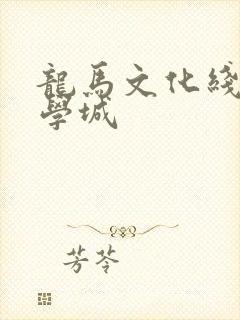 龍馬文化綫
學城
芳苓